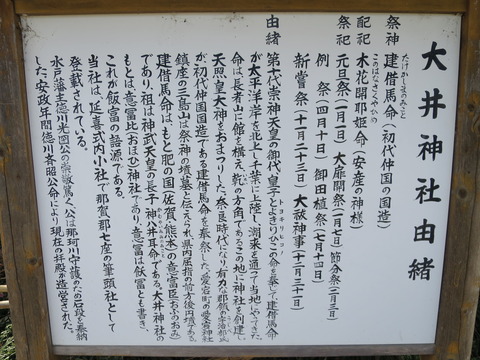 大井神社由緒
祭神 建借馬命(初代仲国の国造)
たけかしまのみこと
配祀 木花開耶姫命(安産の神様)
このはなさくやひめ
祭祀 元旦祭(一月一日) 大扉開祭(一月七日) 節分祭(二月三日)
例祭(四月十日) 御田植祭(七月十日)
新嘗祭(十二月二十三日) 大祓神事(十二月三十一日)
由緒 第十代崇神天皇の御代、皇子とよきいりひこの命を奉じて、建借馬命
トヨキイリヒコノ
が太平洋岸を北上し千葉に上陸し、潮来を通って当地にやってきた
命は長者山に館を構え、乾の方角であるこの地に神社を創建し
天照皇大神をおまつりした。奈良時代になり有力な郡領の宇治部氏
が初代仲国国造である建借馬命を奉祭した。愛宕町の愛宕神社
鎮座の三島山は祭神の墳墓と伝えられ、県内屈指の前方後円墳である。
建借馬命は、もと肥の国(佐賀、熊本)の意富臣(おふのおみ)
であり、祖は神武天皇の長子 神八井耳命である。大井神社の
もとは意富比(おほひ)神社であり、意富は飫富とも書き、
これが飯富の語源である。
当社は、延喜式内小社で那賀郡七座の筆頭社として
登載されている。
水戸藩主徳川光圀公の崇敬篤く、公は那珂川守護のため石段を奉納
した。安政年間徳川斉昭公命により現在の拝殿が造営された。